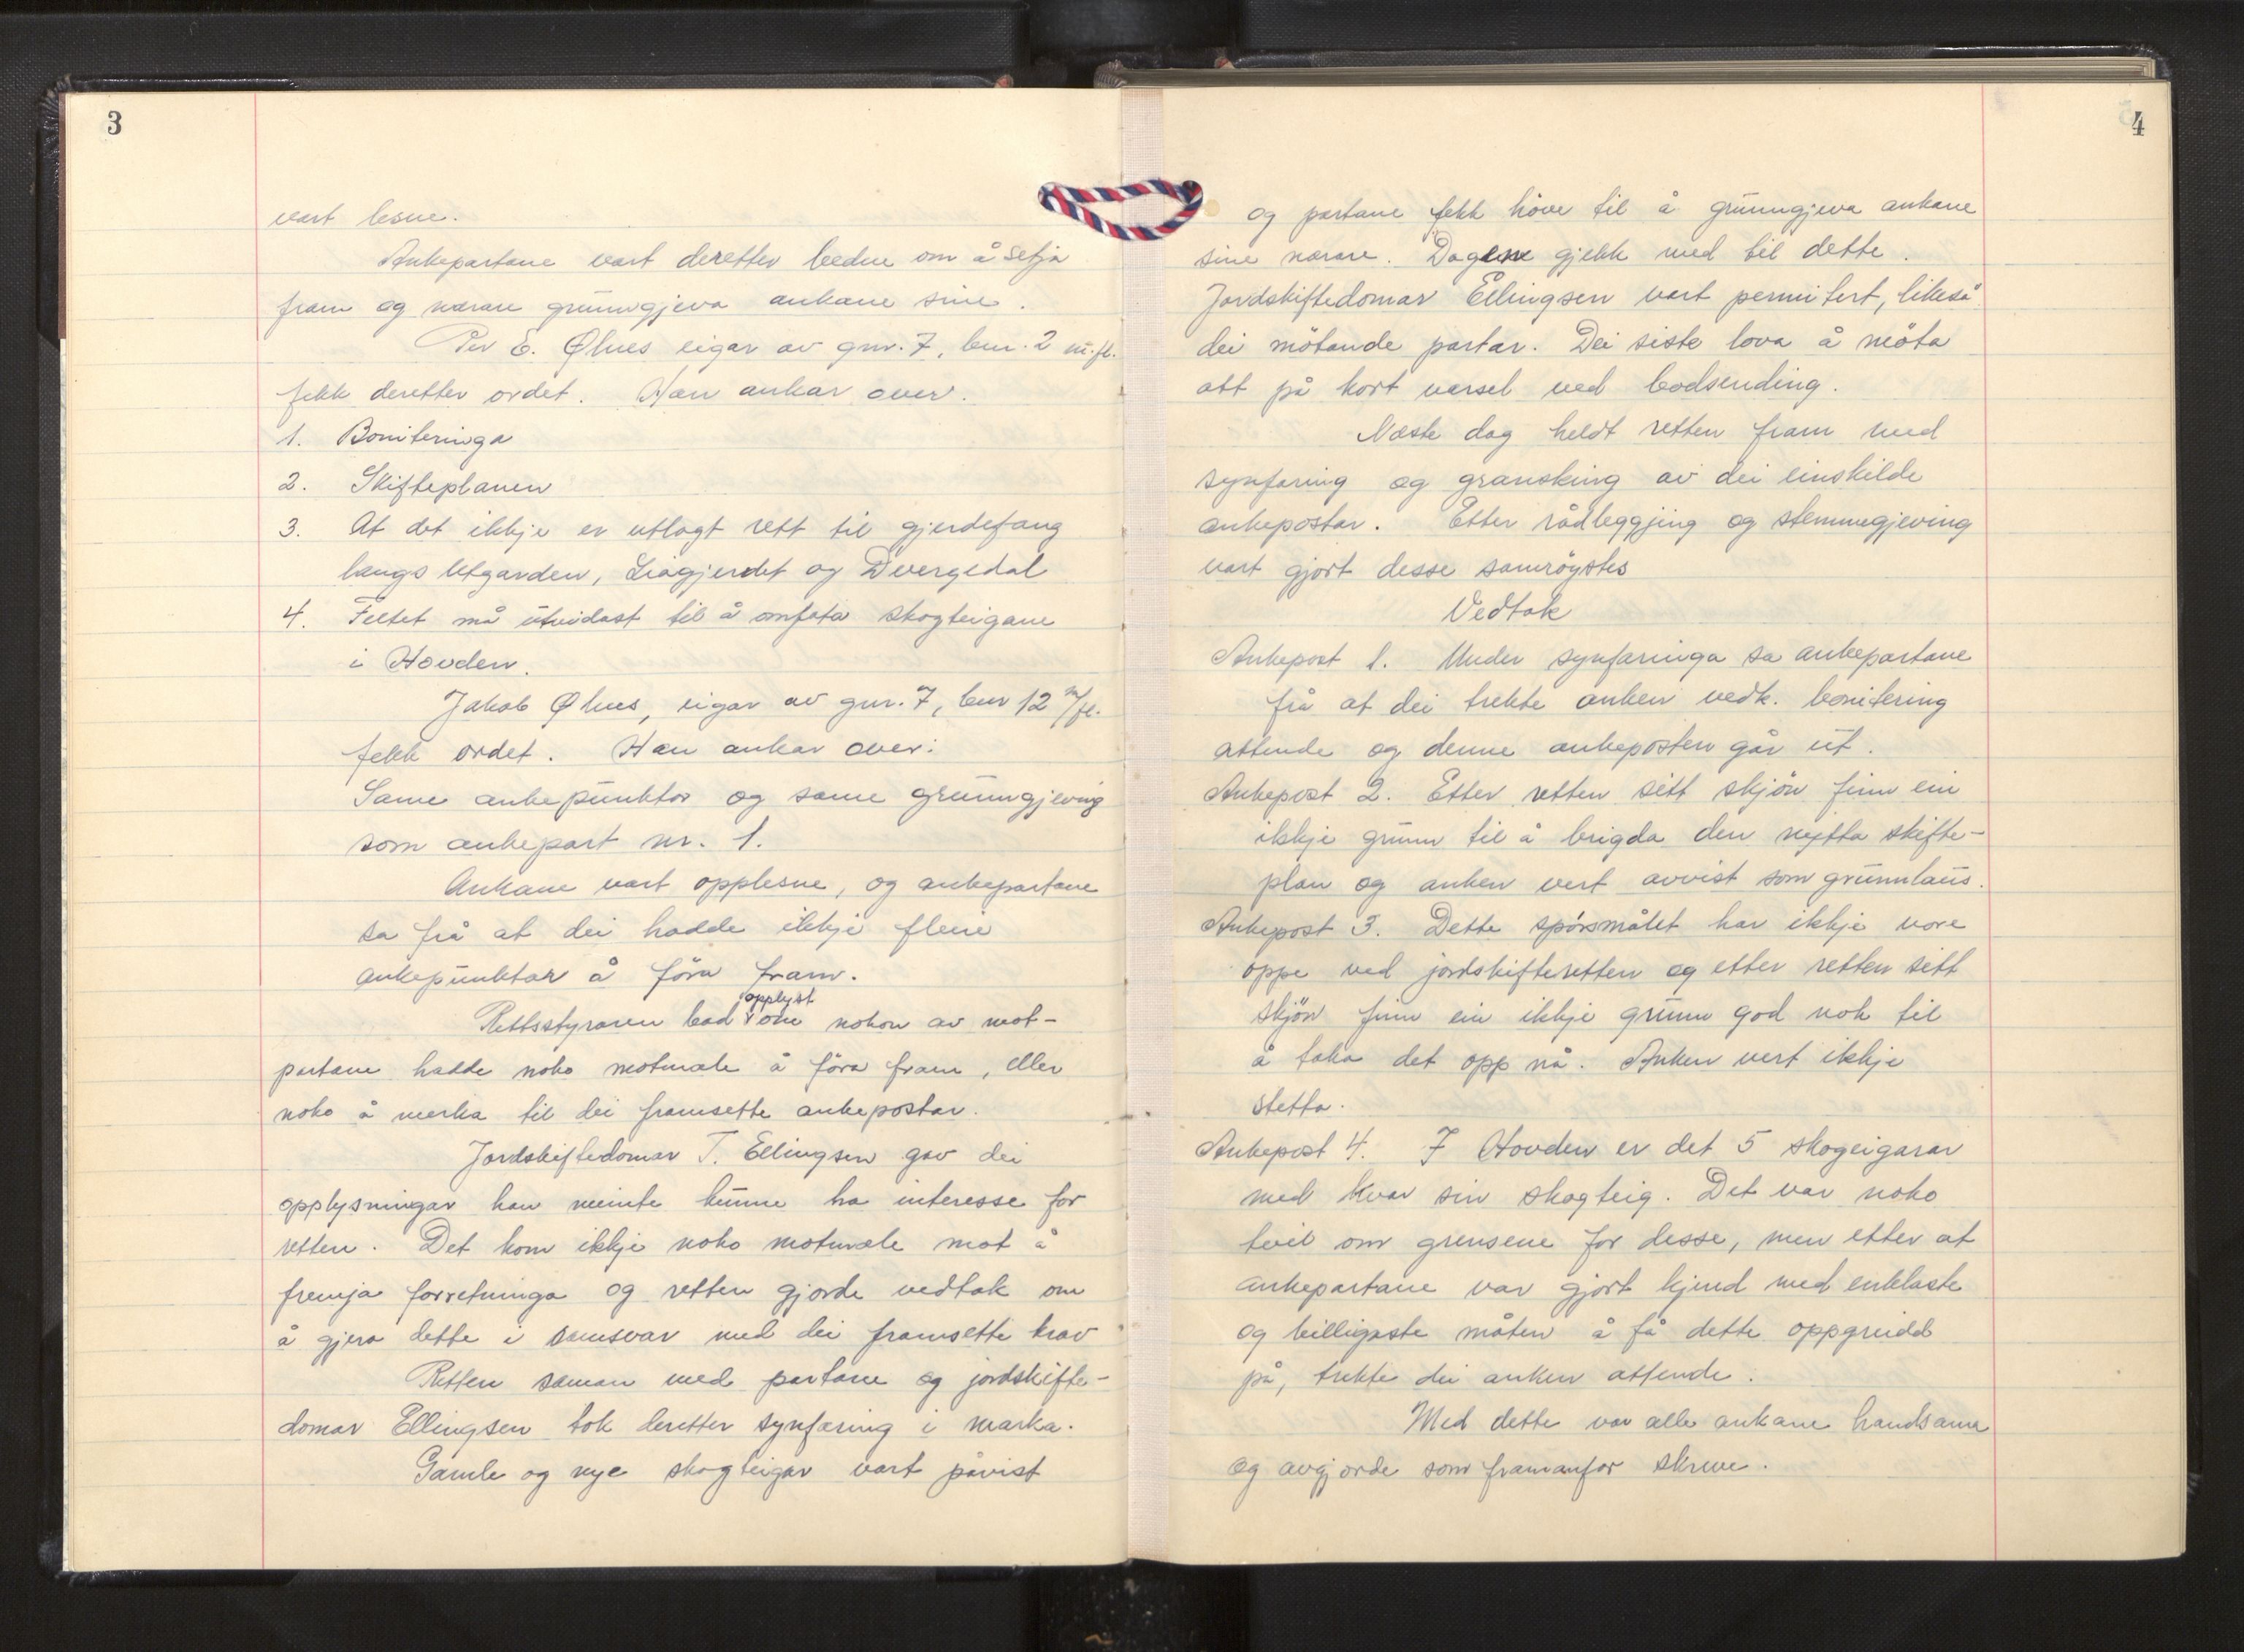 3
vart lesne.
Ankepartane vart deretter bedne om å setja
fram og nærare grunngjeva ankane sine.
Per E. Øhus eigar av gnr. 7, bnr. 2 m.fl.
fekk deretter ordet. Han ankar over.
1. Boniteringa
2. Skifteplanen
3. At det ikkje er utlagt rett til gjerdefang
langs Utgarden, Liagjerdet og Dvergedal
4. Feltet må utvidast til å omfata skogteigane
i Hovden.
Jakob Øhus, eigar av gnr. 7, bnr 12 m/fl.
fekk ordet. Han ankar over:
Same ankepunktor og same grunngjeving
som ankepart nr. 1.
Ankane vart opplesne, og ankepartane
sa frå at dei hadde ikkje fleire
ankepunktar å föra fram.
Rettsstyraren bad opplyst om nokon av mot-
partane hadde noko motmæle å föra fram, eller
noko å merka til dei framsette ankepostar.
Jordskiftedomar T. Ellingsen gav dei
opplysningar han meinte kunne ha interesse for
retten. Det kom ikkje noko motmæle mot å
fremja forretninga og retten gjorde vedtak om
å gjera dette i samsvar med dei framsette krav
Retten saman med partane og jordskifte-
domar Ellingsen tok deretter synfæring i marka.
Gamle og nye skogteigar vart påvist
4
og partane fekk höve til å grunngjeva ankane
sine nærare. Dagen gjekk med til dette.
Jordskiftedomar Ellingsen vart permitert, likeså
dei mötande partar. Dei siste lova å möta
att på kort varsel ved bodsending.
Næste dag heldt retten fram med
synfaring og gransking av dei einskilde
ankepostar. Etter rådleggjing og stemmegjeving
vart gjort desse samröystes
Vedtak
Ankepost 1. Under synfaringa sa ankepartane
frå at dei trekte anken vedk. bonitering
attende og denne ankeposten går ut.
Ankepost 2. Etter retten sitt skjön finn ein
ikkje grunn til å brigda den nytta skifte-
plan og anken vert avvist som grunnlaus.
Ankepost 3. Dette spörsmålet har ikkje vore
oppe ved jordskifteretten og etter retten sitt
skjön finn ein ikkje grunn god nok til
å taka det opp nå. Anken vert ikkje
stetta.
Ankepost 4. I Hovden er det 5 skogeigarar
med kvar sin skogteig. Det var noko
tvil om grensene for desse, men etter at
ankepartane var gjort kjend med enklaste
og billigaste måten å få dette oppgreidd
på, trekte dei anken attende.
Med dette var alle ankane handsama
og avgjorde som framanfor skreve.